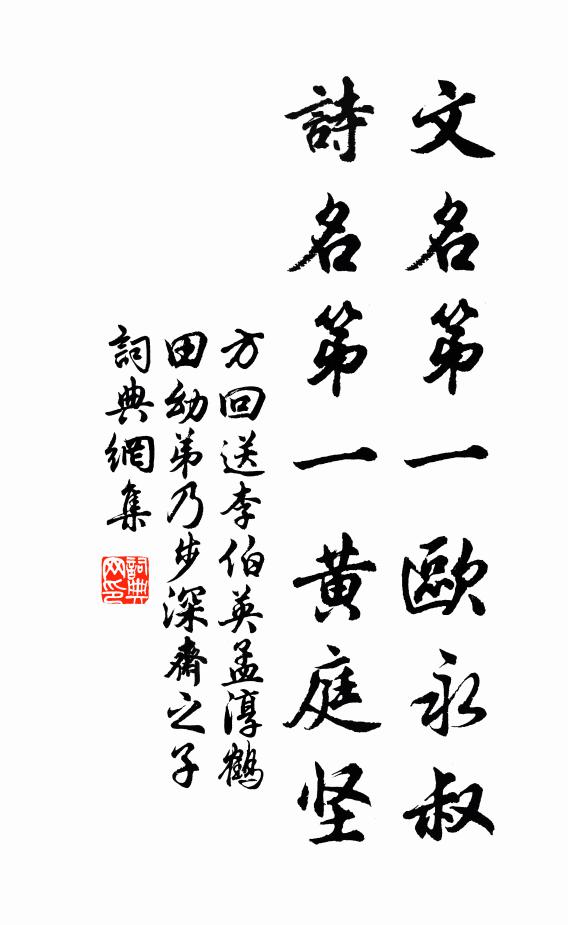 文名第一歐永叔
詩名第一黄庭坚
方回送李伯英孟淳鶴
田幼弟乃步深齋之子
詞典網集
詞典網印